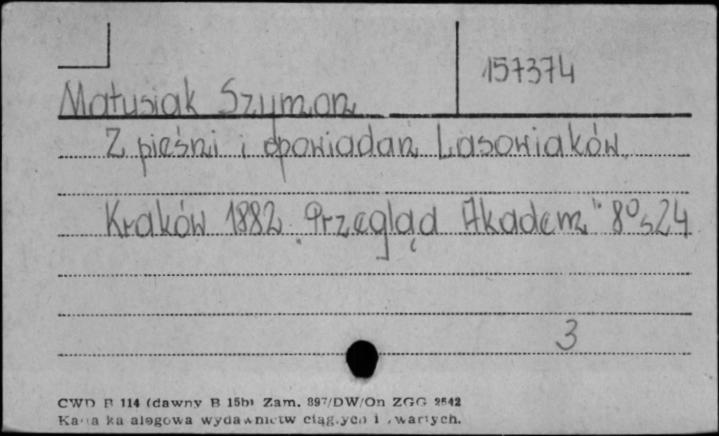 157374
Matusiak Szymon
Z pieśni i opowiadań Lasowiaków.
Kraków 1882 „Przegląd Akadem" 8° s 24
3
CWD P 114 (dawny B 15b) Zam. 897/DW/On ZGG 2542
Karta katalogowa wydawnictw ciągłych i zwartych.